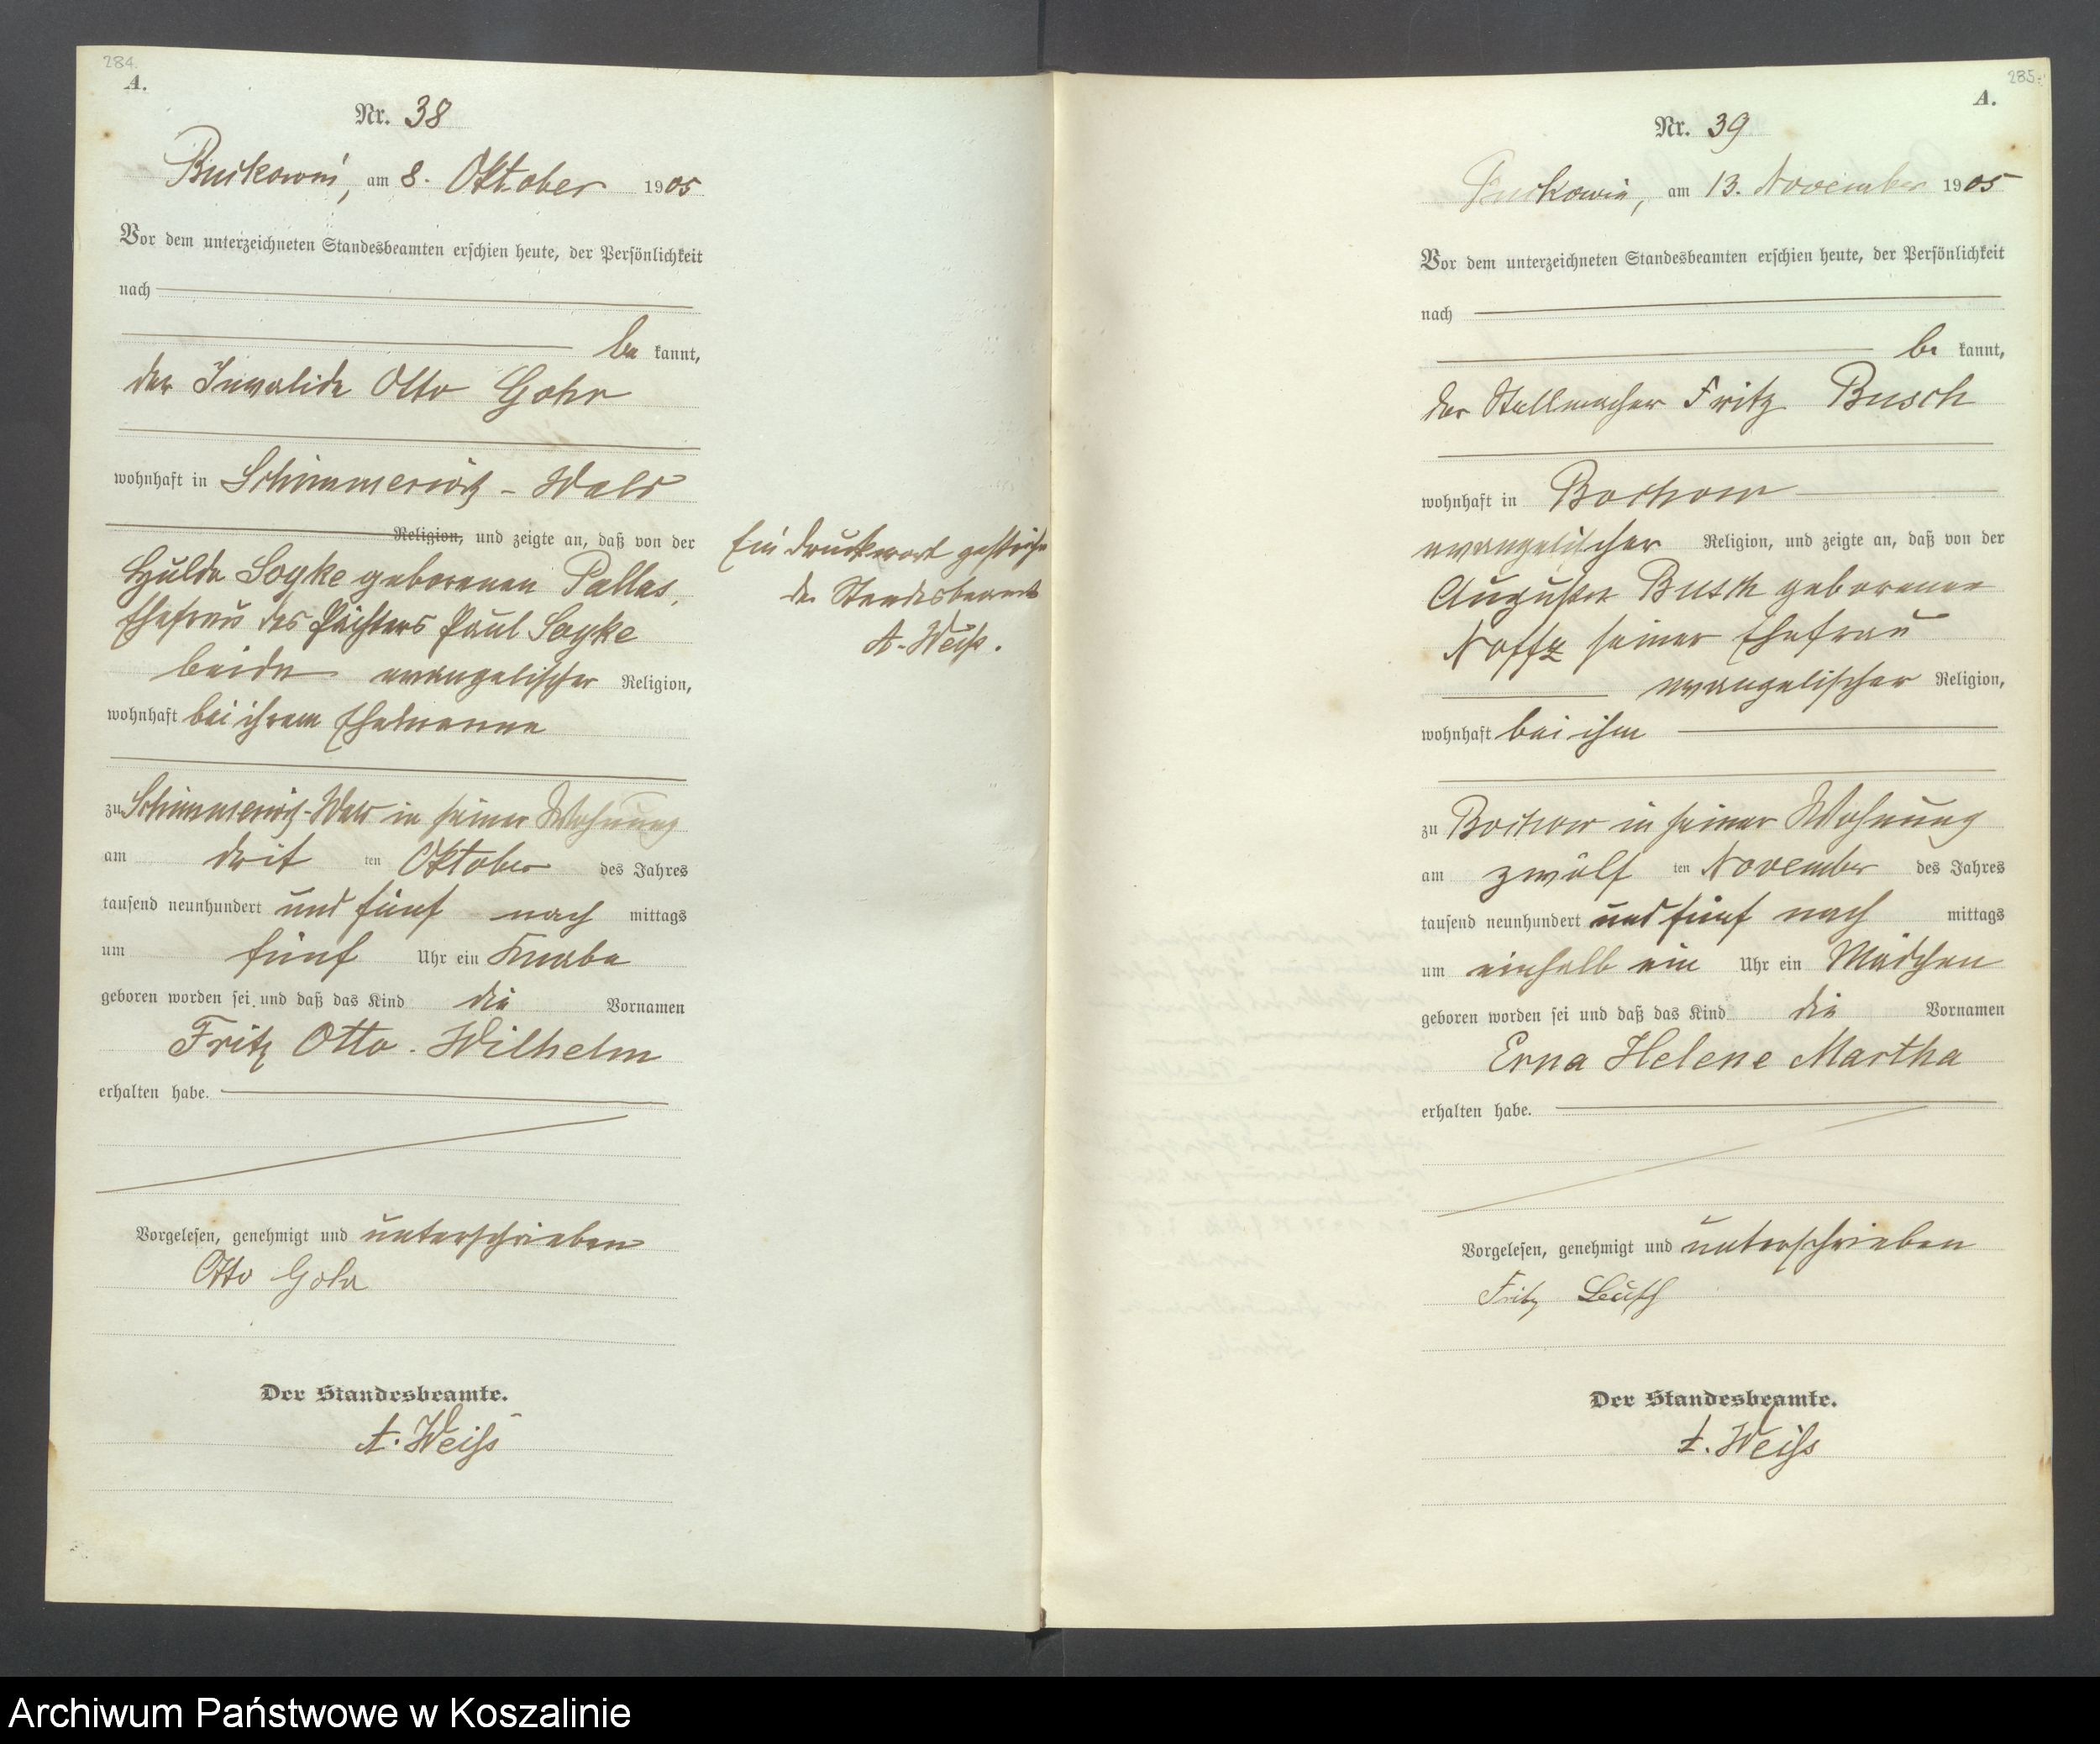 284.
A.
Nr. 38
Buckowin, am 8. Oktober 1905
Vor dem unterzeichneten Standesbeamten erschien heute, der Persönlichkeit
nach
be kannt,
der Invalide Otto Gohr
wohnhaft in Schimmerwitz-Wald
Religion, und zeigte an, daß von der
Hulda Soyke geborenen Pallas,
Ehefrau des Pächters Paul Soyke
beide evangelischer Religion,
wohnhaft bei ihrem Ehemanne
zu Schimmerwitz-Wald in seiner Wohnung
am drit ten Oktober des Jahres
tausend neunhundert und fünf nach mittags
um fünf Uhr ein Knabe
geboren worden sei und daß das Kind die Vornamen
Fritz Otto Wilhelm
erhalten habe.
Vorgelesen, genehmigt und unterschrieben
Otto Gohr
Der Standesbeamte.
A. Weiß
Ein Druckwort gestrichen
der Standesbeamte
A. Weiß.
285.
A.
Nr. 39
Buckowin, am 13. November 1905
Vor dem unterzeichneten Standesbeamten erschien heute, der Persönlichkeit
nach
be kannt,
der Stellmacher Fritz Busch
wohnhaft in Bochow
evangelischer Religion, und zeigte an, daß von der
Auguste Busch geborenen
Noffz seiner Ehefrau
evangelischer Religion,
wohnhaft bei ihm
zu Bochow in seiner Wohnung
am zwölf ten November des Jahres
tausend neunhundert und fünf nach mittags
um einhalb ein Uhr ein Mädchen
geboren worden sei und daß das Kind die Vornamen
Erna Helene Martha
erhalten habe.
Vorgelesen, genehmigt und unterschrieben
Fritz Busch
Der Standesbeamte.
A. Weiß
Archiwum Państwowe w Koszalinie